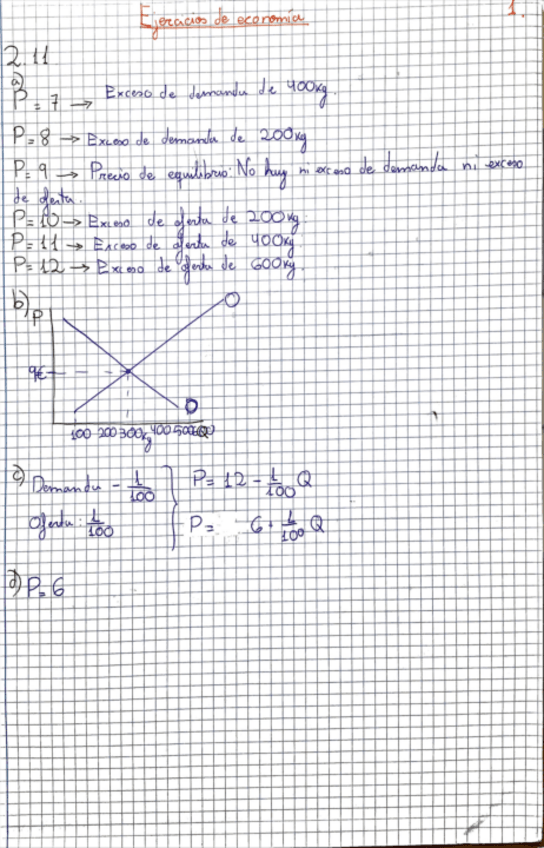 Ejercicios de economía
1.
2.11
a)
P = 7 → Exceso de demanda de 400kg.
P = 8 → Exceso de demanda de 200kg
P = 9 → Precio de equilibrio: No hay ni exceso de demanda ni exceso
de oferta.
P = 10 → Exceso de oferta de 200kg.
P = 11 → Exceso de oferta de 400kg.
P = 12 → Exceso de oferta de 600kg.
b)
P
O
9€
D
100 200 300kg 400 500 Q
c) Demanda - 1/100 } P = 12 - 1/100 Q
Oferta: 1/100 } P = 6 + 1/100 Q
d) P = 6